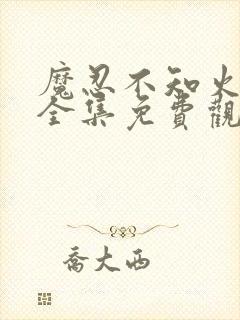 魔忍不知火
全集免費觀
喬大西